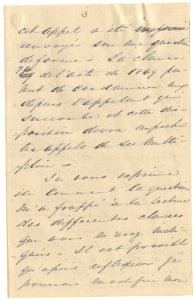 3
cet appel a été
renvoyé sur une question
de forme. La clause
74 de l'acte de 1869 per
met de condamner aux
dépens l'appelant qui
succombe et cette dis
position devra empêcher
les appels de se multi
plier.
Je vous exprime
ici comment la question
m'a frappé à la lecture
des différentes clauses
que vous m'avez indi
quées. Il est possible
qu'après réflexion je
pourrais modifier mon